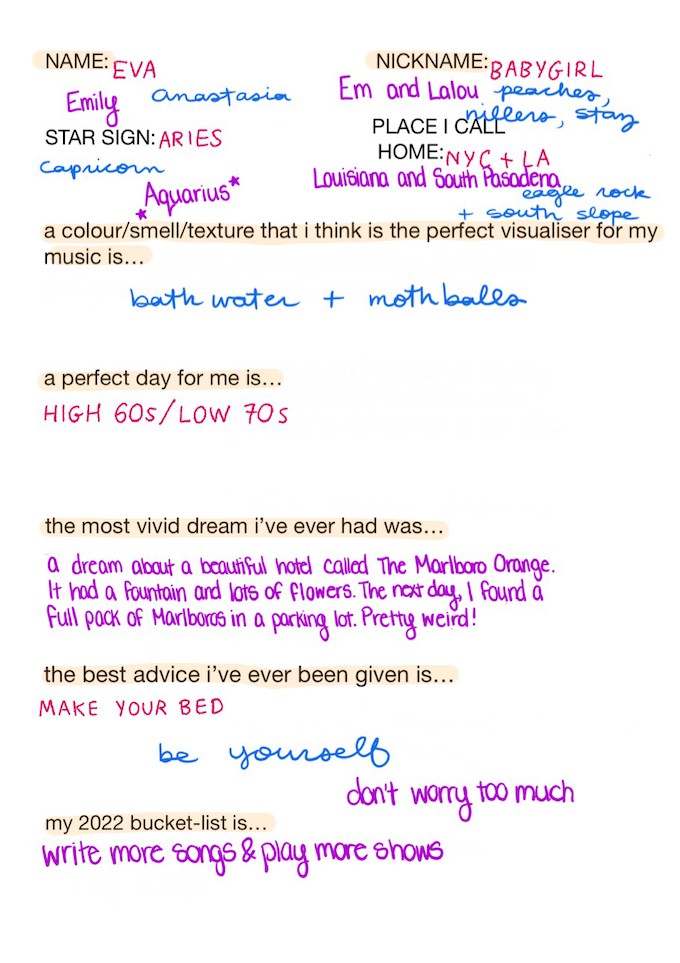 NAME: EVA
Emily anastasia
NICKNAME: BABYGIRL
Em and Lalou peaches,
nillers, staz
STAR SIGN: ARIES
capricorn
*Aquarius*
PLACE I CALL
HOME: NYC + LA
Louisiana and South Pasadena
eagle rock
+ south slope
a colour/smell/texture that i think is the perfect visualiser for my
music is…
bath water + moth balls
a perfect day for me is…
HIGH 60s/LOW 70s
the most vivid dream i've ever had was…
a dream about a beautiful hotel called The Marlboro Orange.
It had a fountain and lots of flowers. The next day, I found a
full pack of Marlboros in a parking lot. Pretty weird!
the best advice i've ever been given is…
MAKE YOUR BED
be yourself
don't worry too much
my 2022 bucket-list is…
write more songs & play more shows